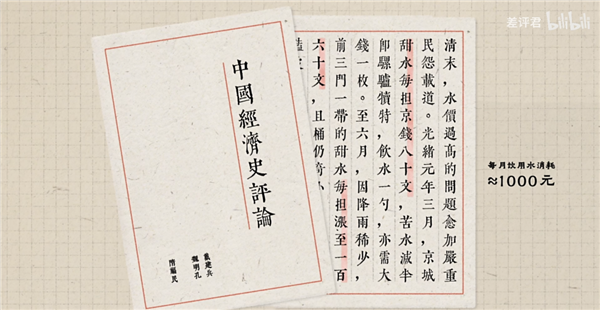 差评君 bilibili
中國經濟史評論
戴建兵
魏明孔
隋福民
清末，水價過高的問題愈加嚴重
民怨載道。光緒元年三月，京城
甜水每担京錢八十文，苦水減半
即騾驢犢特，飲水一勺，亦需大
錢一枚。至六月，因降雨稀少，
前三門一帶的甜水每担漲至一百
六十文，且桶仍窄小
每月饮用水消耗
≈1000元